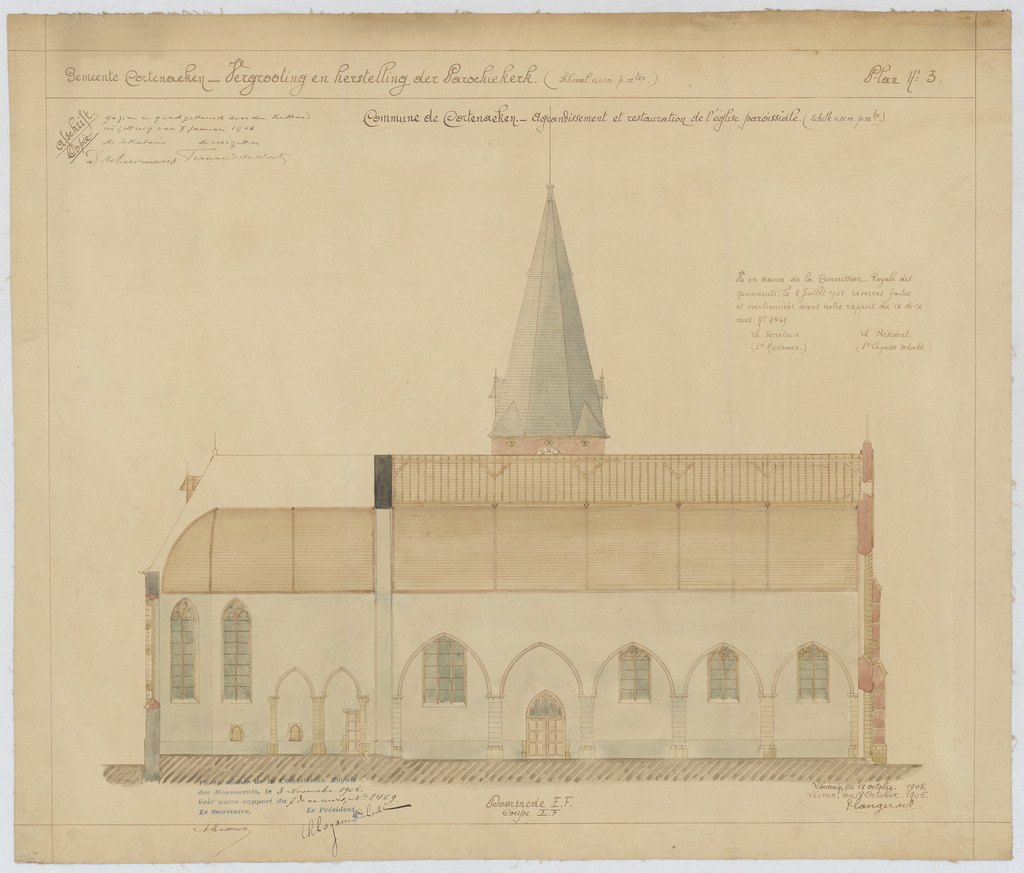 Gemeente Cortenaeken — Vergrooting en herstelling der Parochiekerk. (Schaal 0,01m p.mter.)
Plan No 3.
Commune de Cortenaeken. — Agrandissement et restauration de l'église paroissiale. (Echelle 0,01m p.mtre.)
Afschrift
Copie
gezien en goedgekeurd door den Kerkraad
in zitting van 7 Januari 1906
de Secretaris de voorzitter
Vu en séance de la Commission Royale des
Monuments, le 8 Juillet 1905. réserves faites
et mentionnées dans notre rapport du 14 de ce
mois. No 8469.
Le Secrétaire Le Président
(St Massaux.) (St Lagasse-deLocht)
Vu en séance de la Commission Royale
des Monuments, le 3 Novembre 1906.
Voir notre rapport du de ce mois, No 8469
Le Secrétaire, Le Président,
A. Massaux Ch Lagasse de Locht
Doorsnede E.F.
Coupe E.F
Louvain, ce 18 octobre. 1905.
Leuven, den 18 October 1905.
P Langerock